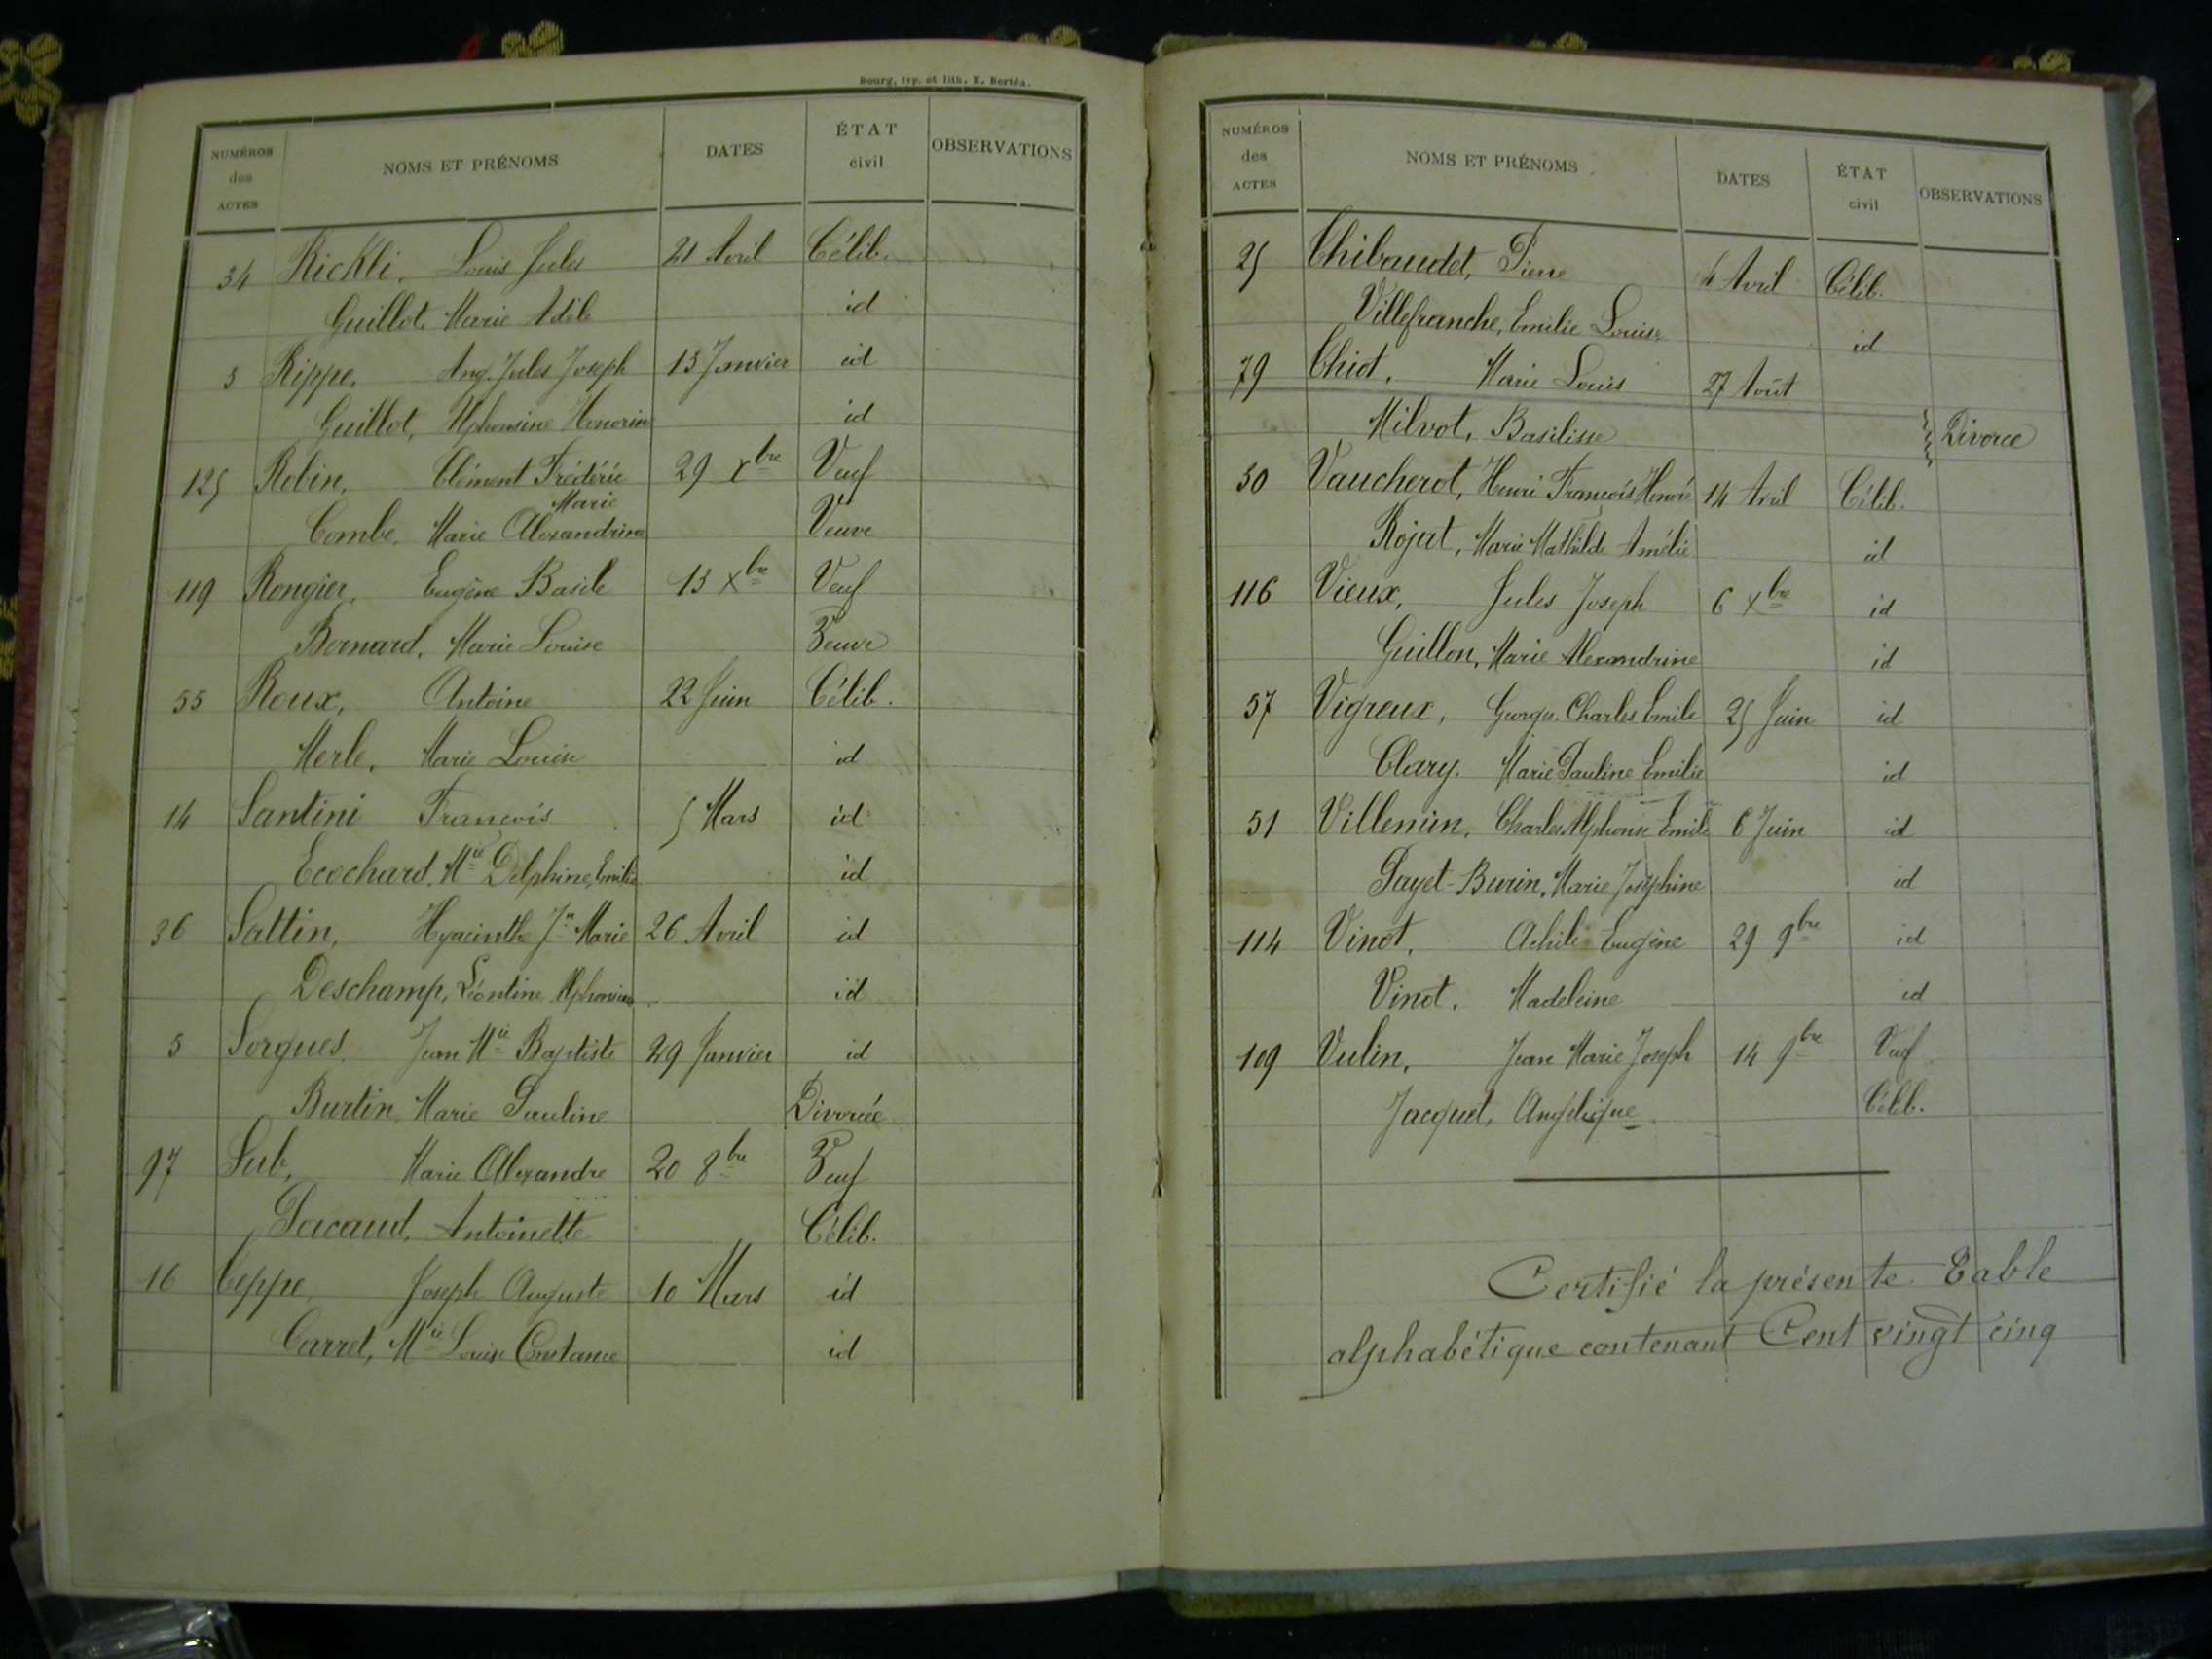 Bourg, typ. et lith. E. Bertéa.
NUMÉROS des ACTES NOMS ET PRÉNOMS DATES ÉTAT civil OBSERVATIONS
34 Rickli, Louis Jules 21 Avril Célib.
Guillot, Marie Adèle id
3 Rippe, Aug. Jules Joseph 13 Janvier id
Guillot, Alphonsine Honorine id
125 Robin, Clément Frédéric 29 Xbre Veuf
Marie
Combe, Marie Alexandrine Veuve
119 Rongier, Eugène Basile 13 Xbre Veuf
Bernard, Marie Louise Veuve
55 Roux, Antoine 22 Juin Célib.
Merle, Marie Louise id
14 Santini François 5 Mars id
Ecochard, Mie Delphine, Emilie id
36 Sattin, Hyacinthe Jn Marie 26 Avril id
Deschamp, Léontine Alphonsine id
5 Sorgues, Jean Mie Baptiste 29 Janvier id
Burtin, Marie Pauline Divorcée
97 Sub, Marie Alexandre 20 8bre Veuf
Pacaud, Antoinette Célib.
16 Teppe, Joseph Auguste 10 Mars id
Carret, Mie Louise Constance id
NUMÉROS des ACTES NOMS ET PRÉNOMS DATES ÉTAT civil OBSERVATIONS
25 Thibaudet, Pierre 4 Avril Célib.
Villefranche, Emilie Louise id
79 Thiot, Marie Louis 27 Août
Milvot, Basilisse Divorce
30 Vaucherot, Henri François Honoré 14 Avril Célib.
Rojat, Marie Mathilde Amélie id
116 Vieux, Jules Joseph 6 Xbre id
Guillon, Marie Alexandrine id
57 Vigreux, Georges Charles Emile 25 Juin id
Clary, Marie Pauline Emilie id
51 Villemin, Charles Alphonse Emile 6 Juin id
Payet-Burin, Marie Joséphine id
114 Vinot, Achile Eugène 29 9bre id
Vinot, Madeleine id
109 Vulin, Jean Marie Joseph 14 9bre Veuf
Jacquet, Angélique Célib.
Certifié la présente Table
alphabétique contenant Cent vingt cinq